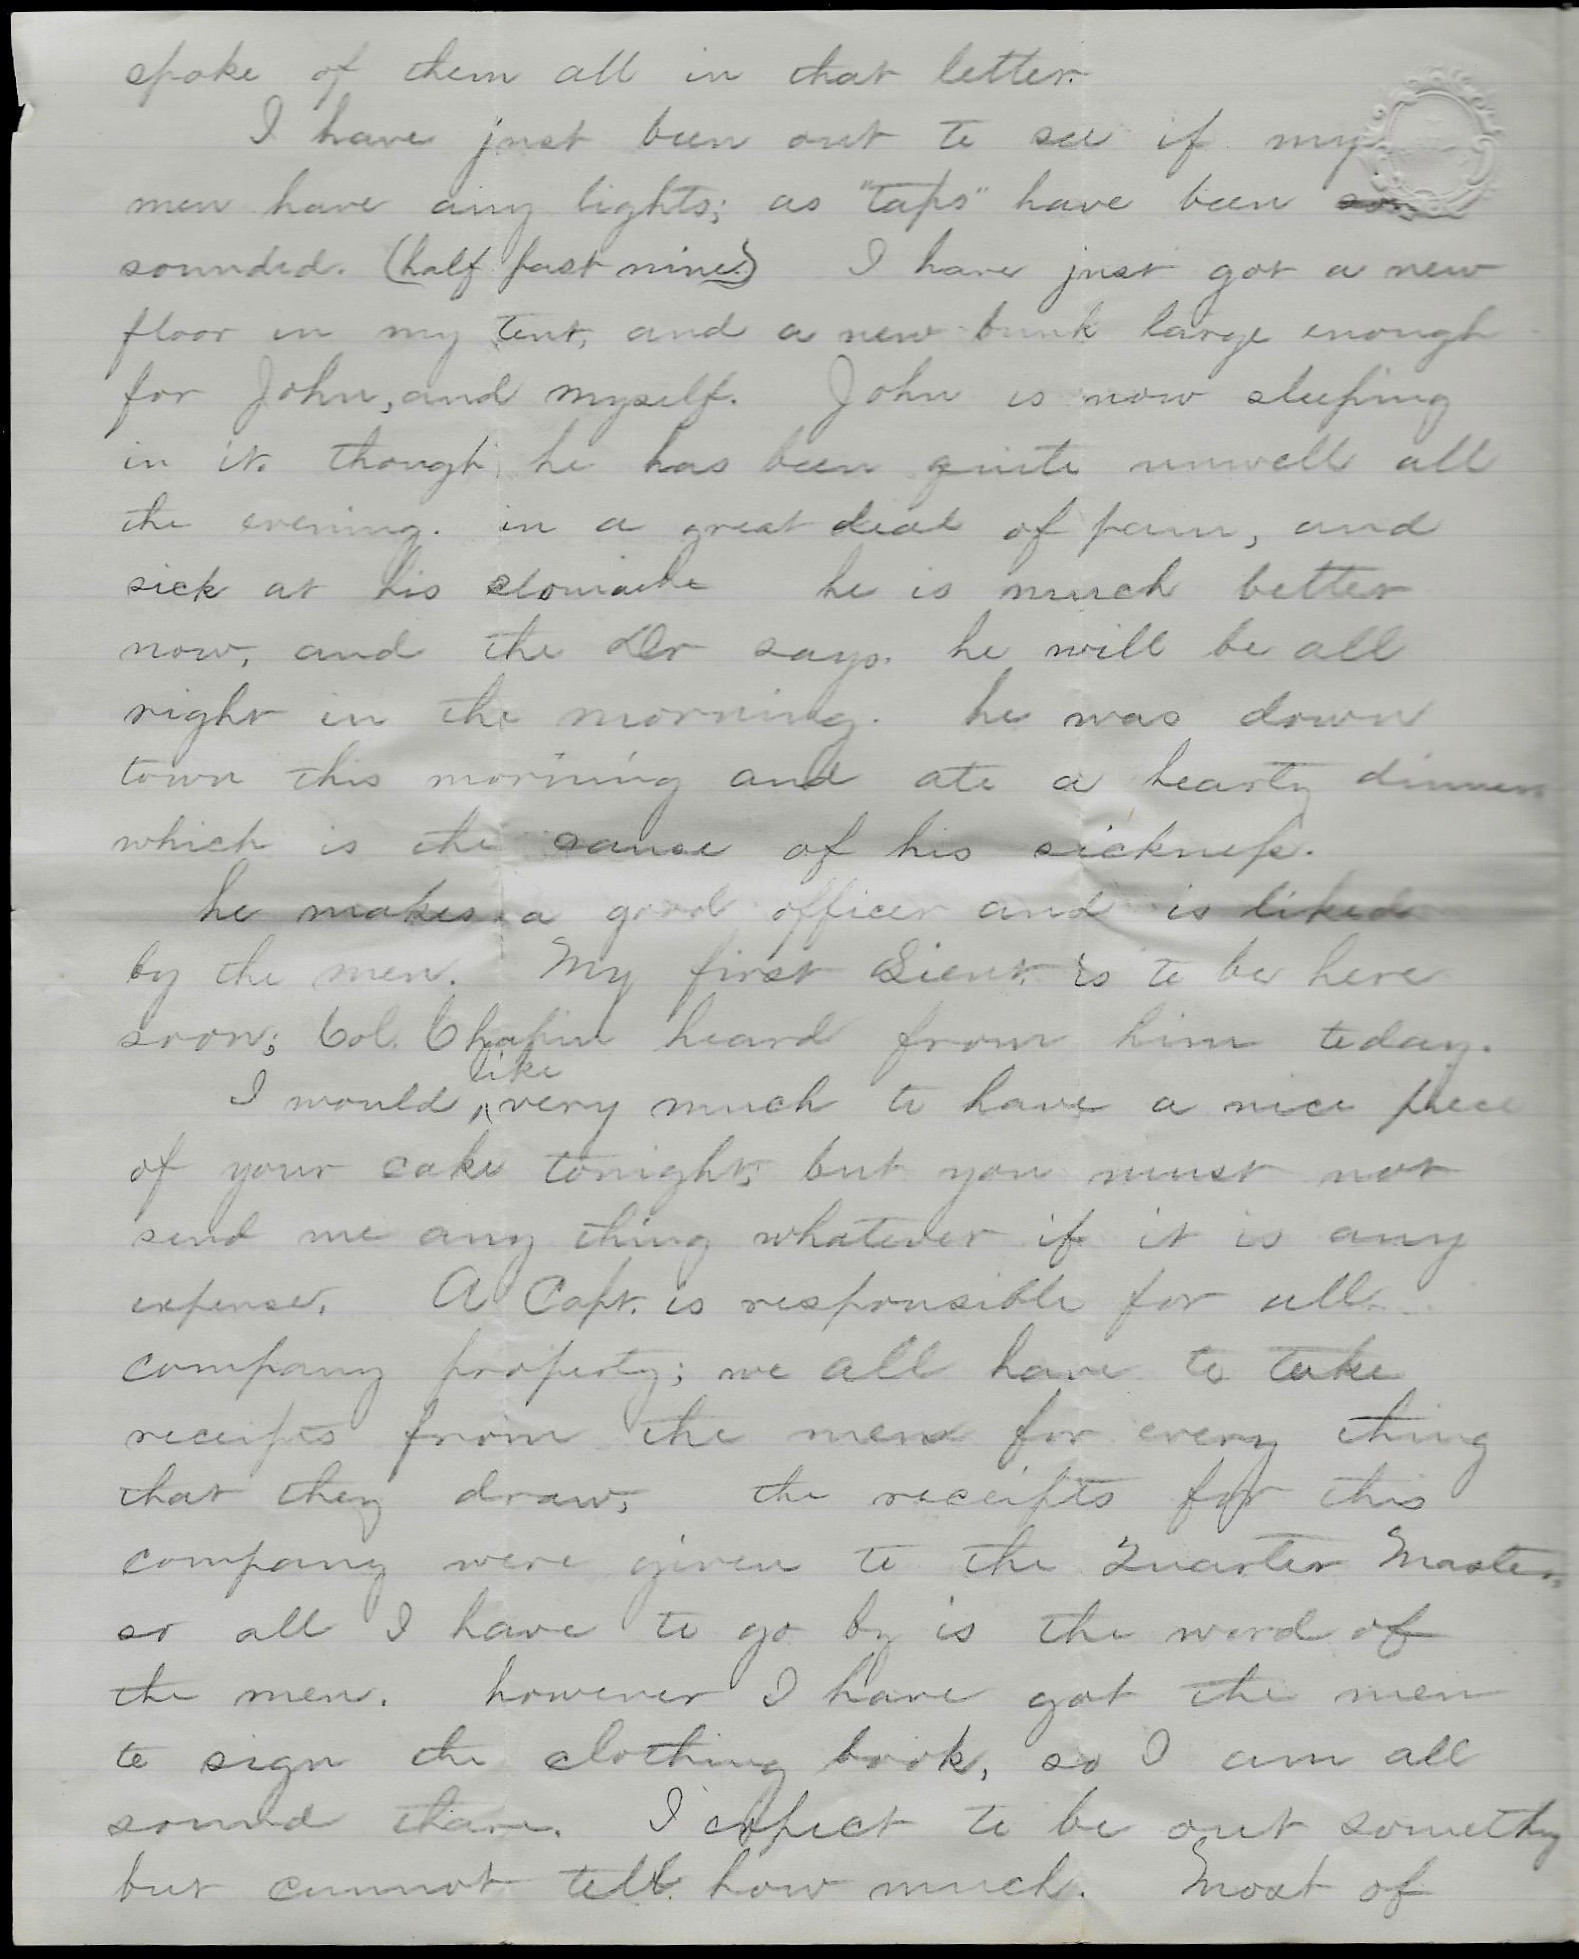 spoke of them all in that letter.
I have just been out to see if my
men have any lights; as "taps" have been son
sounded. (half past nine.) I have just got a new
floor in my tent, and a new bunk large enough
for John, and myself. John is now sleeping
in it. though he has been quite unwell all
the evening. in a great deal of pain, and
sick at his stomache he is much better
now, and the Dr says. he will be all
right in the morning. he was down
town this morning and ate a hearty dinner
which is the cause of his sickness.
he makes a good officer and is liked
by the men. My first Lieut. is to be here
soon; Col. Chapin heard from him today.
I would like very much to have a nice piece
of your cake tonight; but you must not
send me any thing whatever if it is any
expense. A Capt. is responsible for all
company property; we all have to take
receipts from the men for every thing
that they draw, the receipts for this
company were given to the Quarter Master,
so all I have to go by is the word of
the men. however I have got the men
to sign the clothing book, so I am all
sound thare. I expect to be out somethg
but cannot tell how much. Most of